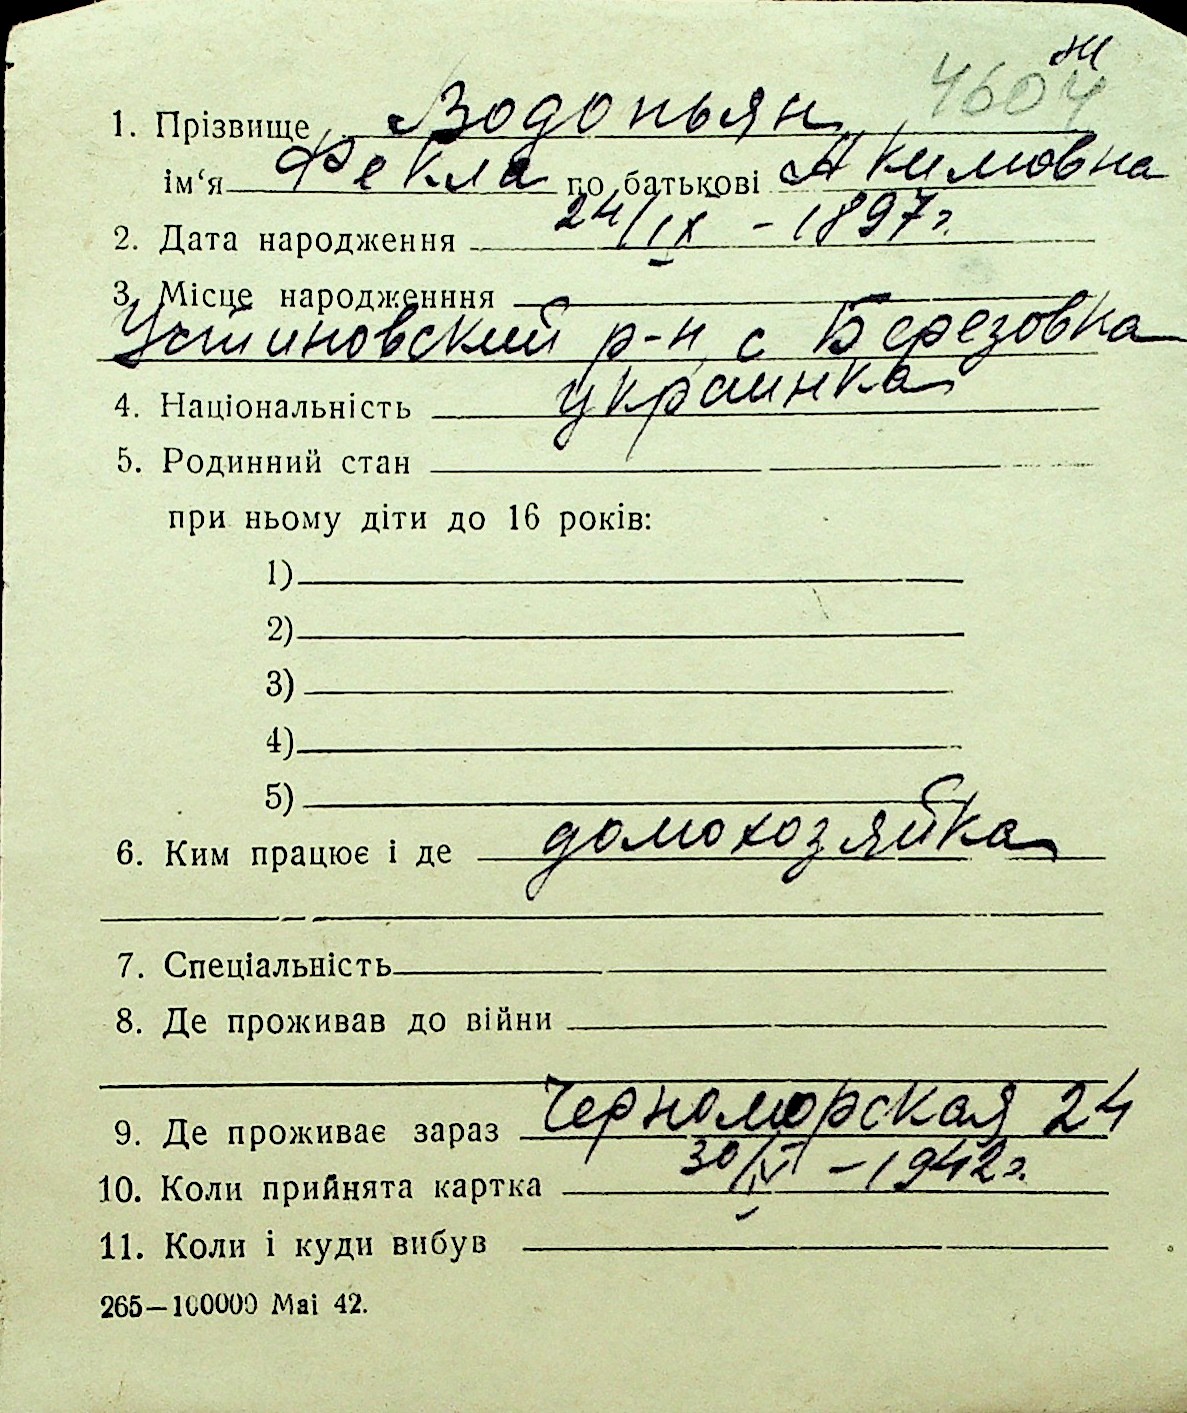 ж
4604
1. Прізвище Водопьян
ім‘я Фекла по батькові Акимовна
2. Дата народження 24/IX - 1897 г.
3. Місце народженння
Устиновский р-н, с Березовка
4. Національність украинка
5. Родинний стан
при ньому діти до 16 років:
1)
2)
3)
4)
5)
6. Ким працює і де домохозяйка
7. Спеціальність
8. Де проживав до війни
9. Де проживає зараз Черноморская 24
10. Коли прийнята картка 30/IV - 1942 г.
11. Коли і куди вибув
265—100000 Mai 42.